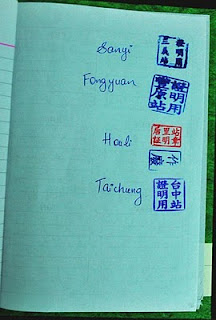 Sanyi
證明用
三義站
Fongyuan
證明用
豐原站
Houli
后里站
証明章
作廢
Taichung
台中站
證明用